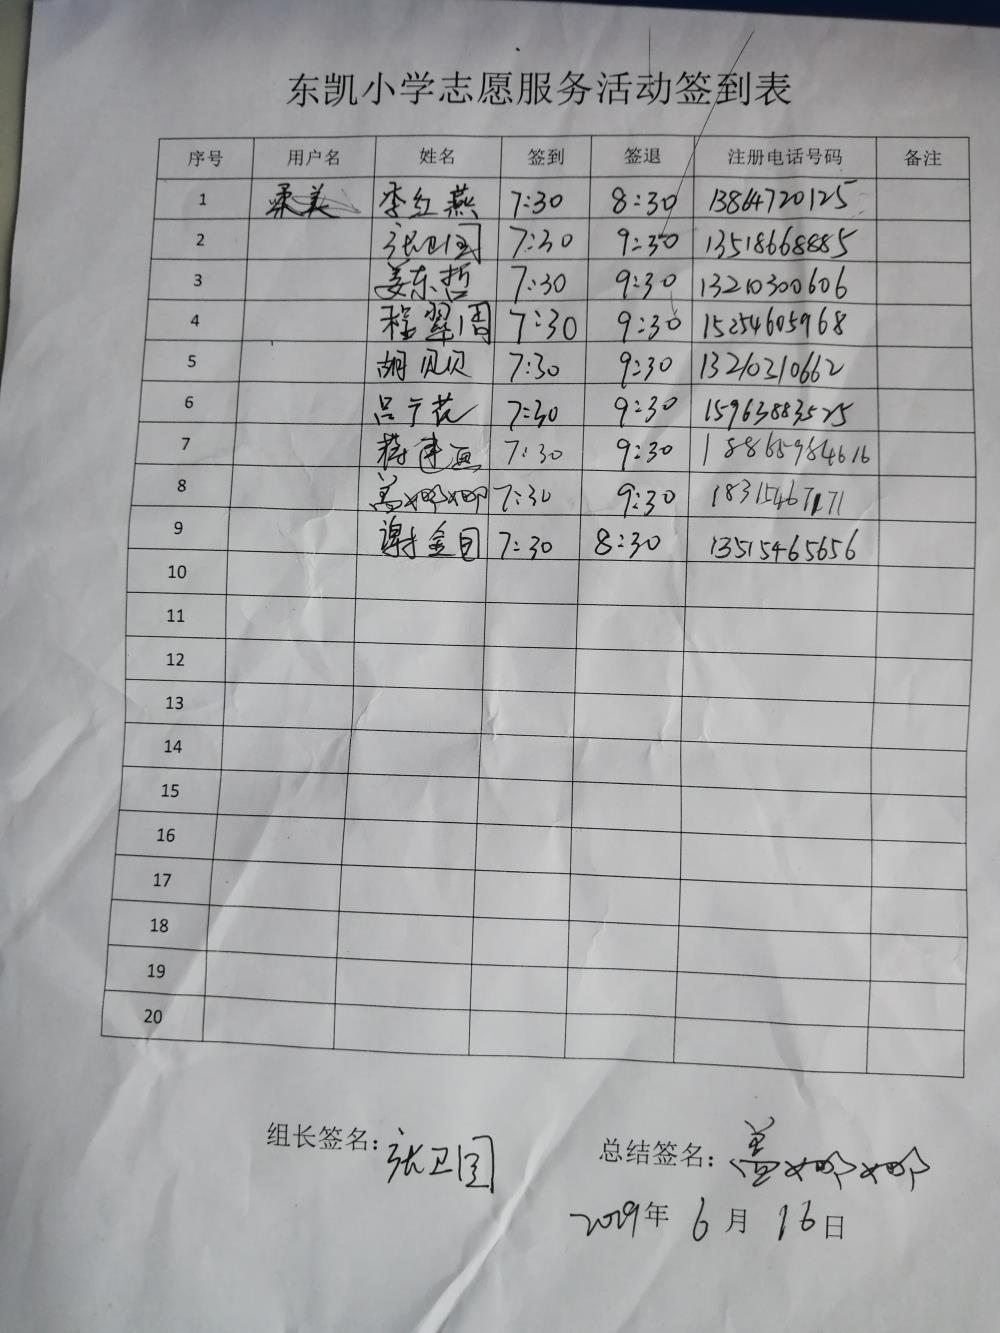 东凯小学志愿服务活动签到表
序号 用户名 姓名 签到 签退 注册电话号码 备注
1 柔美 李红燕 7:30 8:30 13864720125
2 张卫国 7:30 9:30 13518668885
3 姜东哲 7:30 9:30 13210300606
4 程翠周 7:30 9:30 15254605968
5 胡贝贝 7:30 9:30 13210310662
6 吕广花 7:30 9:30 15963883525
7 7:30 9:30 18865984616
8 盖娜娜 7:30 9:30
9 谢金国 7:30 8:30 13515465656
10
11
12
13
14
15
16
17
18
19
20
组长签名：张卫国
总结签名：盖娜娜
2019年 6月 16日